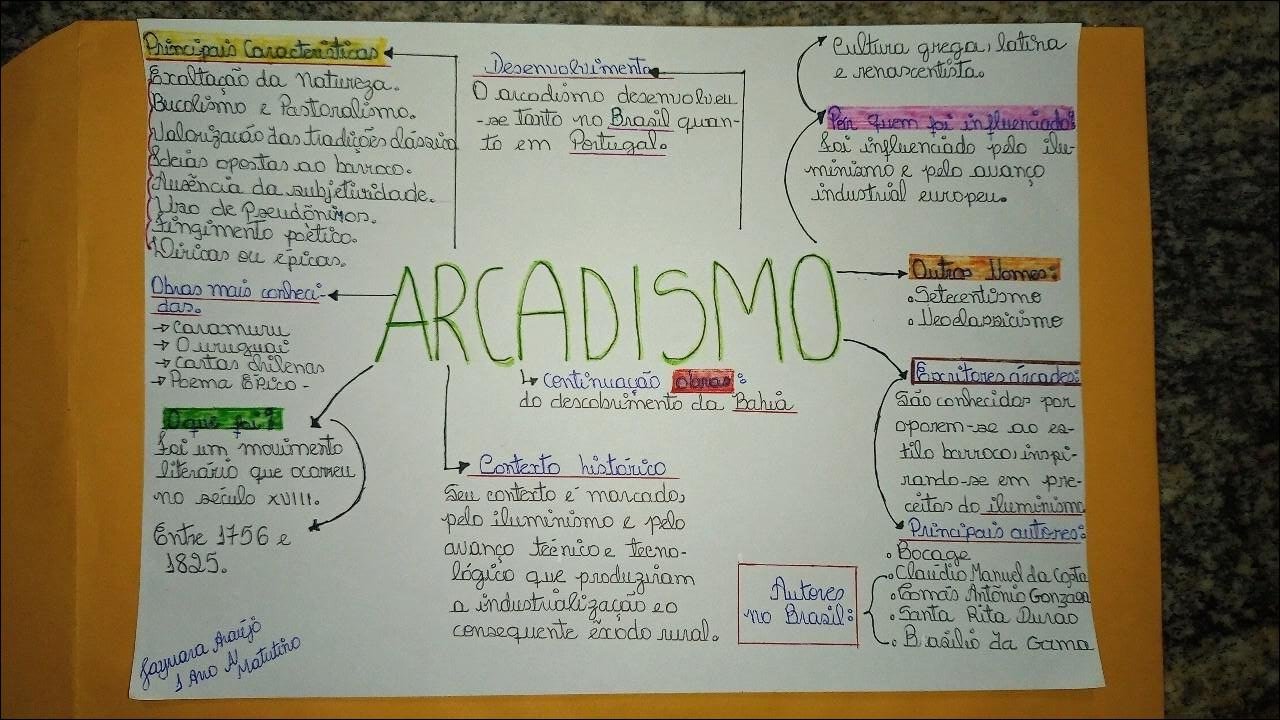 Principais Características
Exaltação da Natureza.
Bucolismo e Pastoralismo.
Valorização das tradições clássica
Ideias opostas ao barroco.
Ausência da subjetividade.
Uso de Pseudônimos.
Fingimento poètico.
Líricas ou épicas.
Obras mais conheci-
das.
→ Caramuru
→ O uruguai
→ Cartas chilenas
→ Poema Épico -
O que foi?
Foi um movimento
literário que ocorreu
no século XVIII.
Entre 1756 e
1825.
Jaynara Araújo
1 Ano "A"
Matutino
Desenvolvimento
O arcadismo desenvolveu
-se tanto no Brasil quan-
to em Portugal.
ARCADISMO
↳ Continuação obras:
do descobrimento da Bahia
Contexto histórico
Seu contexto é marcado,
pelo iluminismo e pelo
avanço técnico e tecno-
lógico que produziram
a industrialização e o
consequente êxodo rural.
Cultura grega, latina
e renascentista.
Por quem foi influenciado?
Foi influenciado pelo ilu-
minismo e pelo avanço
industrial europeu.
Outros Nomes:
• Setecentismo
• Neoclassicismo
Escritores árcades:
São conhecidos por
oporem-se ao es-
tilo barroco, inspi-
rando-se em pre-
ceitos do iluminismo
Principais autores:
• Bocage
• Claúdio Manuel da Costa
• Tomás Antônio Gonzaga
• Santa Rita Durão
• Basílio da Gama
Autores
no Brasil: